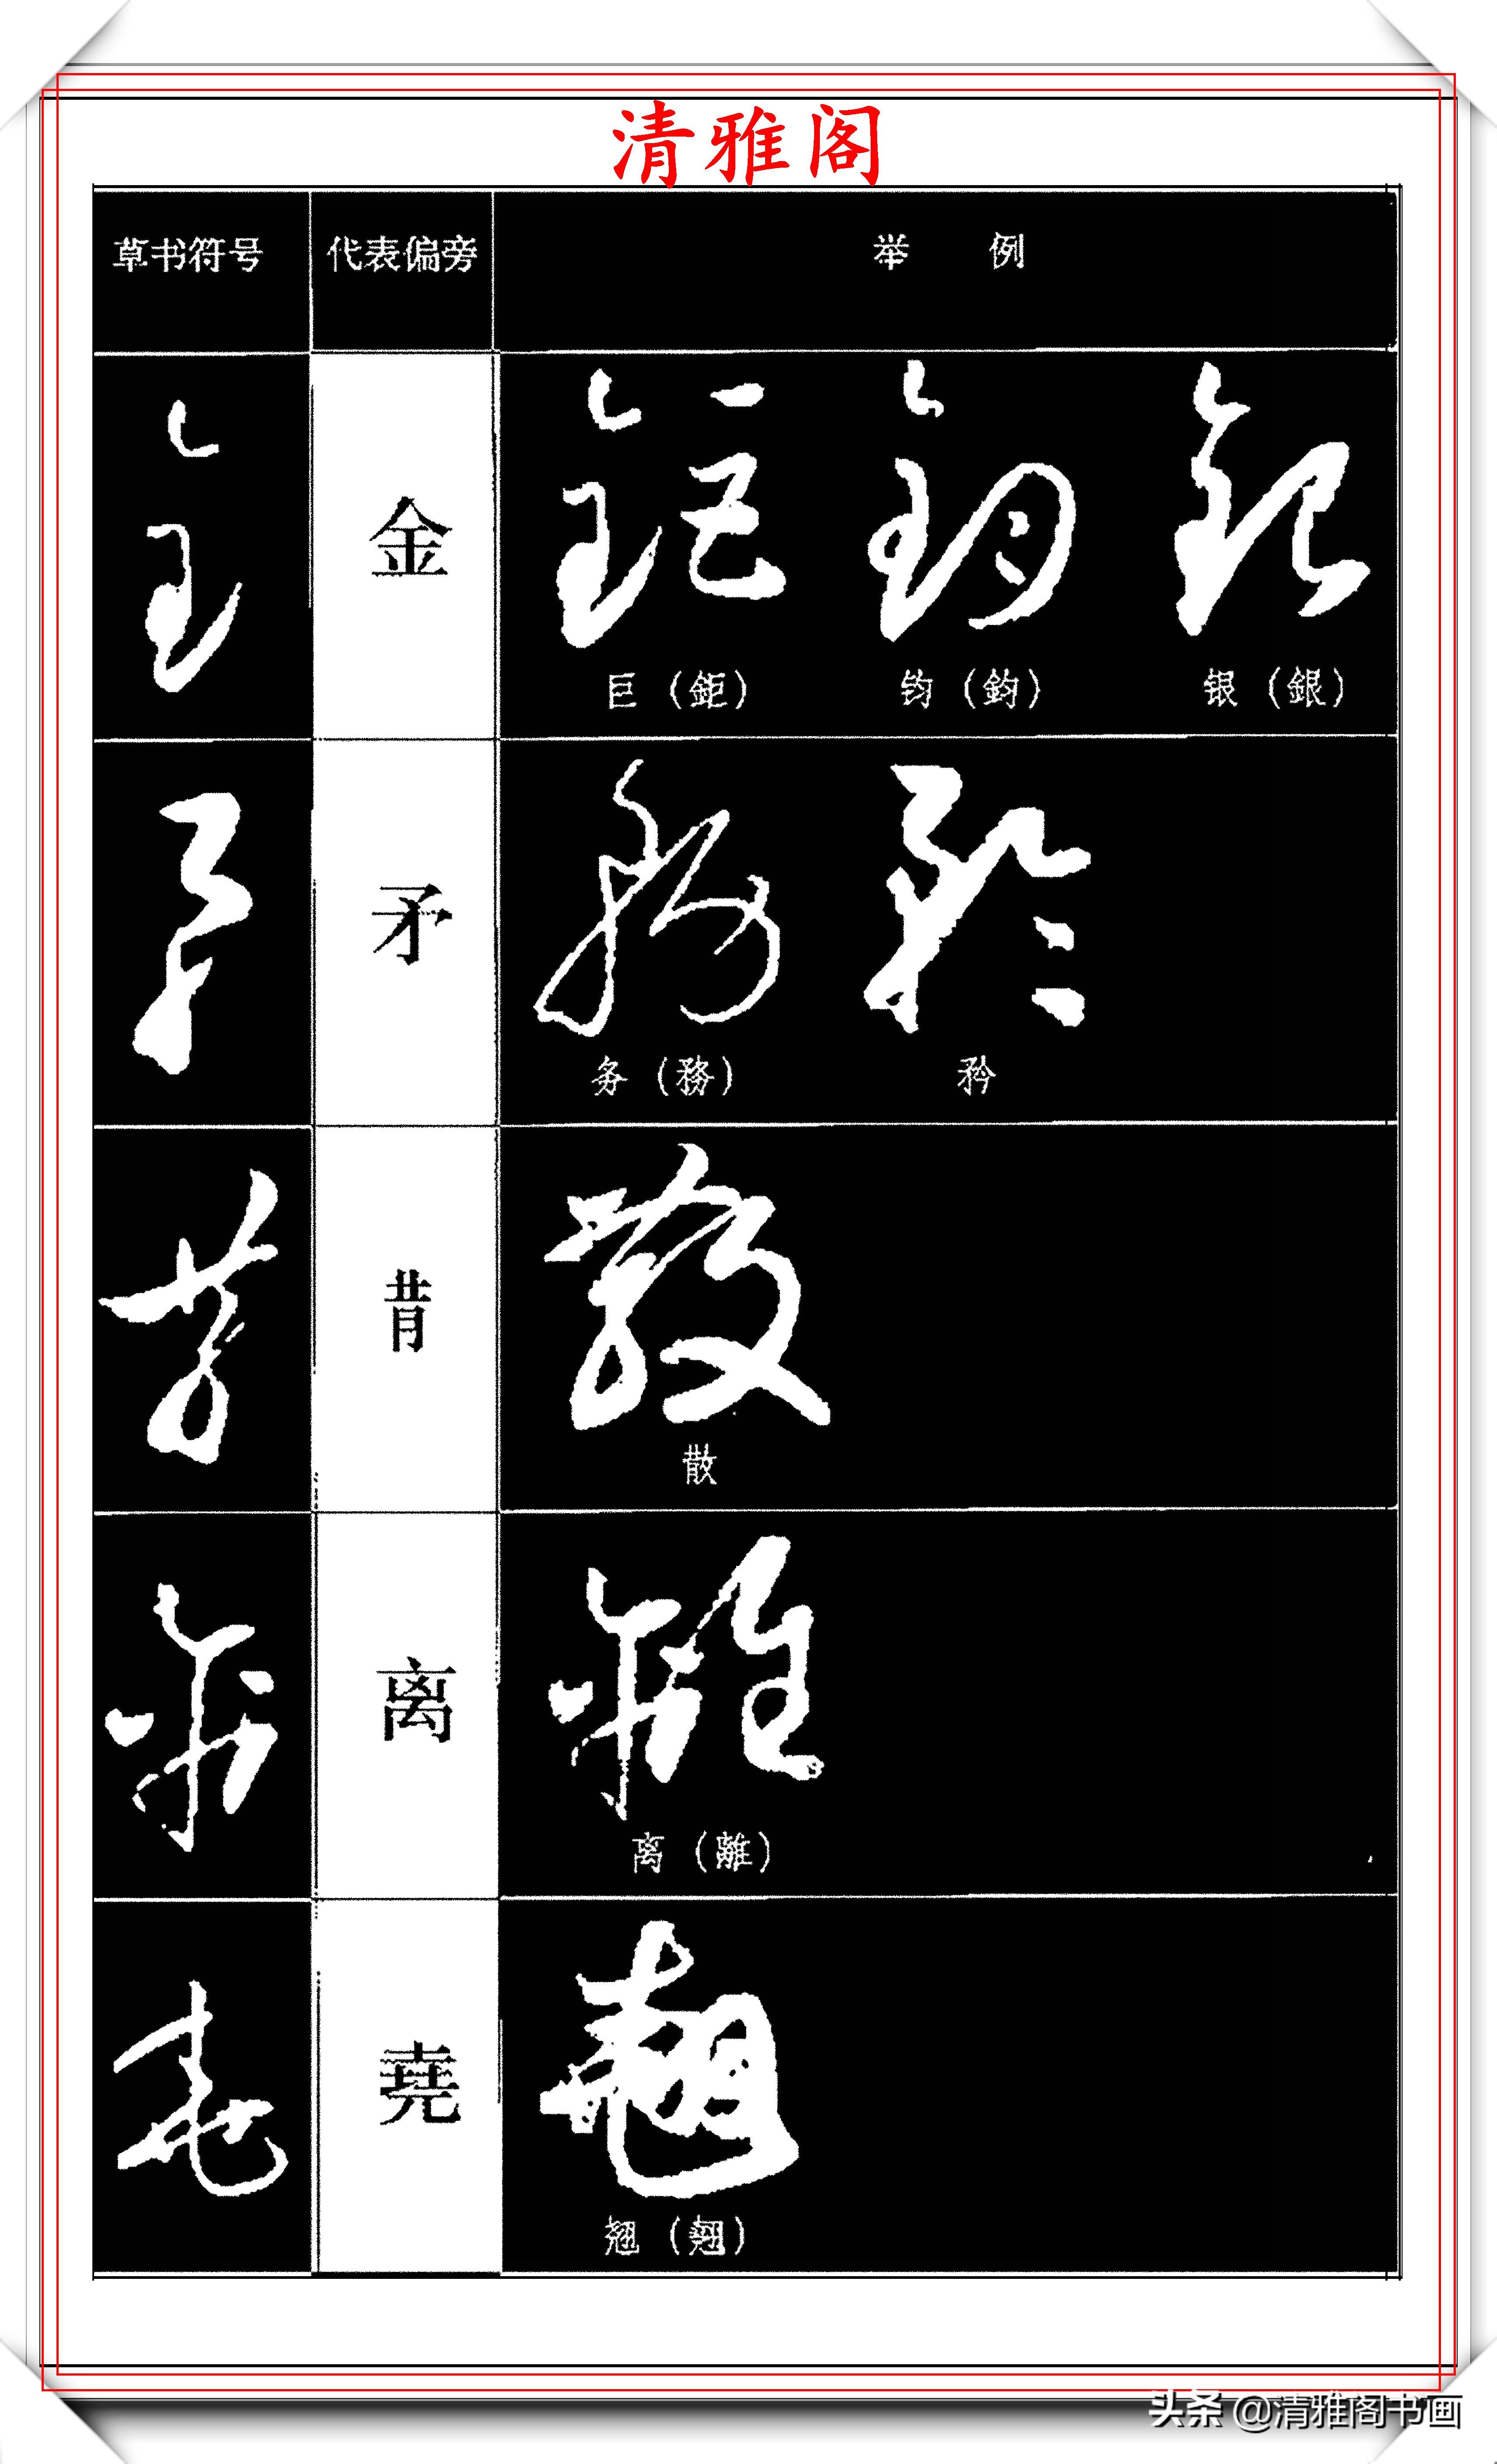 清雅阁
草书符号 代表偏旁 举 例
金
巨（鉅） 钧（鈞） 银（銀）
矛
务（務） 矜
散
离
离（離）
堯
翘（翹）
头条 @清雅阁书画